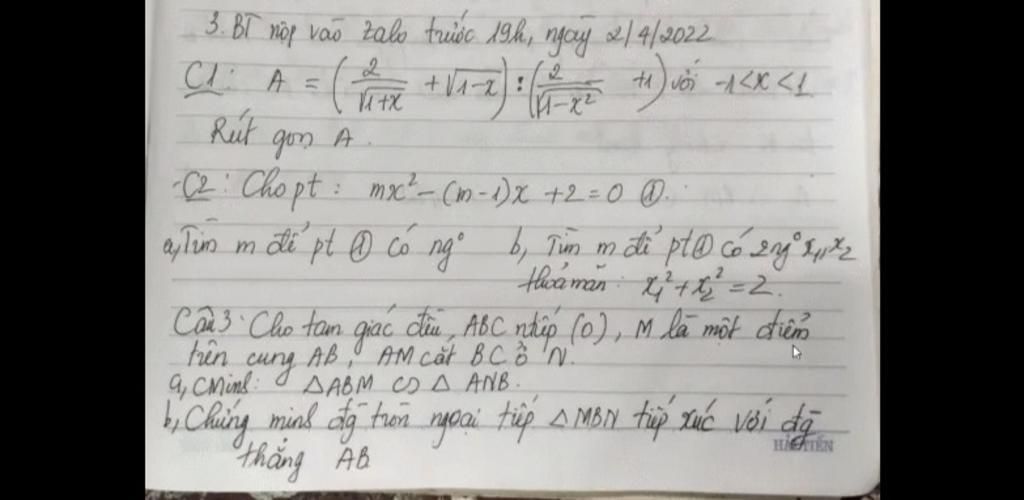 3. BT nộp vào zalo trước 19h, ngày 2/4/2022
C1: A = (2/√(1+x) + √(1-x)) : (2/√(1-x²) +1) với -1<x<1
Rút gọn A.
-C2: Cho pt: mx² - (m-1)x + 2 = 0 ①.
a, Tìm m để pt ① có ng° b, Tìm m để pt ① có 2ng° x₁, x₂
thoả mãn: x₁² + x₂² = 2.
Câu 3: Cho tam giác đều, ABC ntiếp (O), M là một điểm
trên cung AB, AM cắt BC ở N.
a, CMinh: △ABM ∽ △ANB.
b, Chứng minh đg tròn ngoại tiếp △MBN tiếp xúc với đg
HẢI TIẾN
thẳng AB